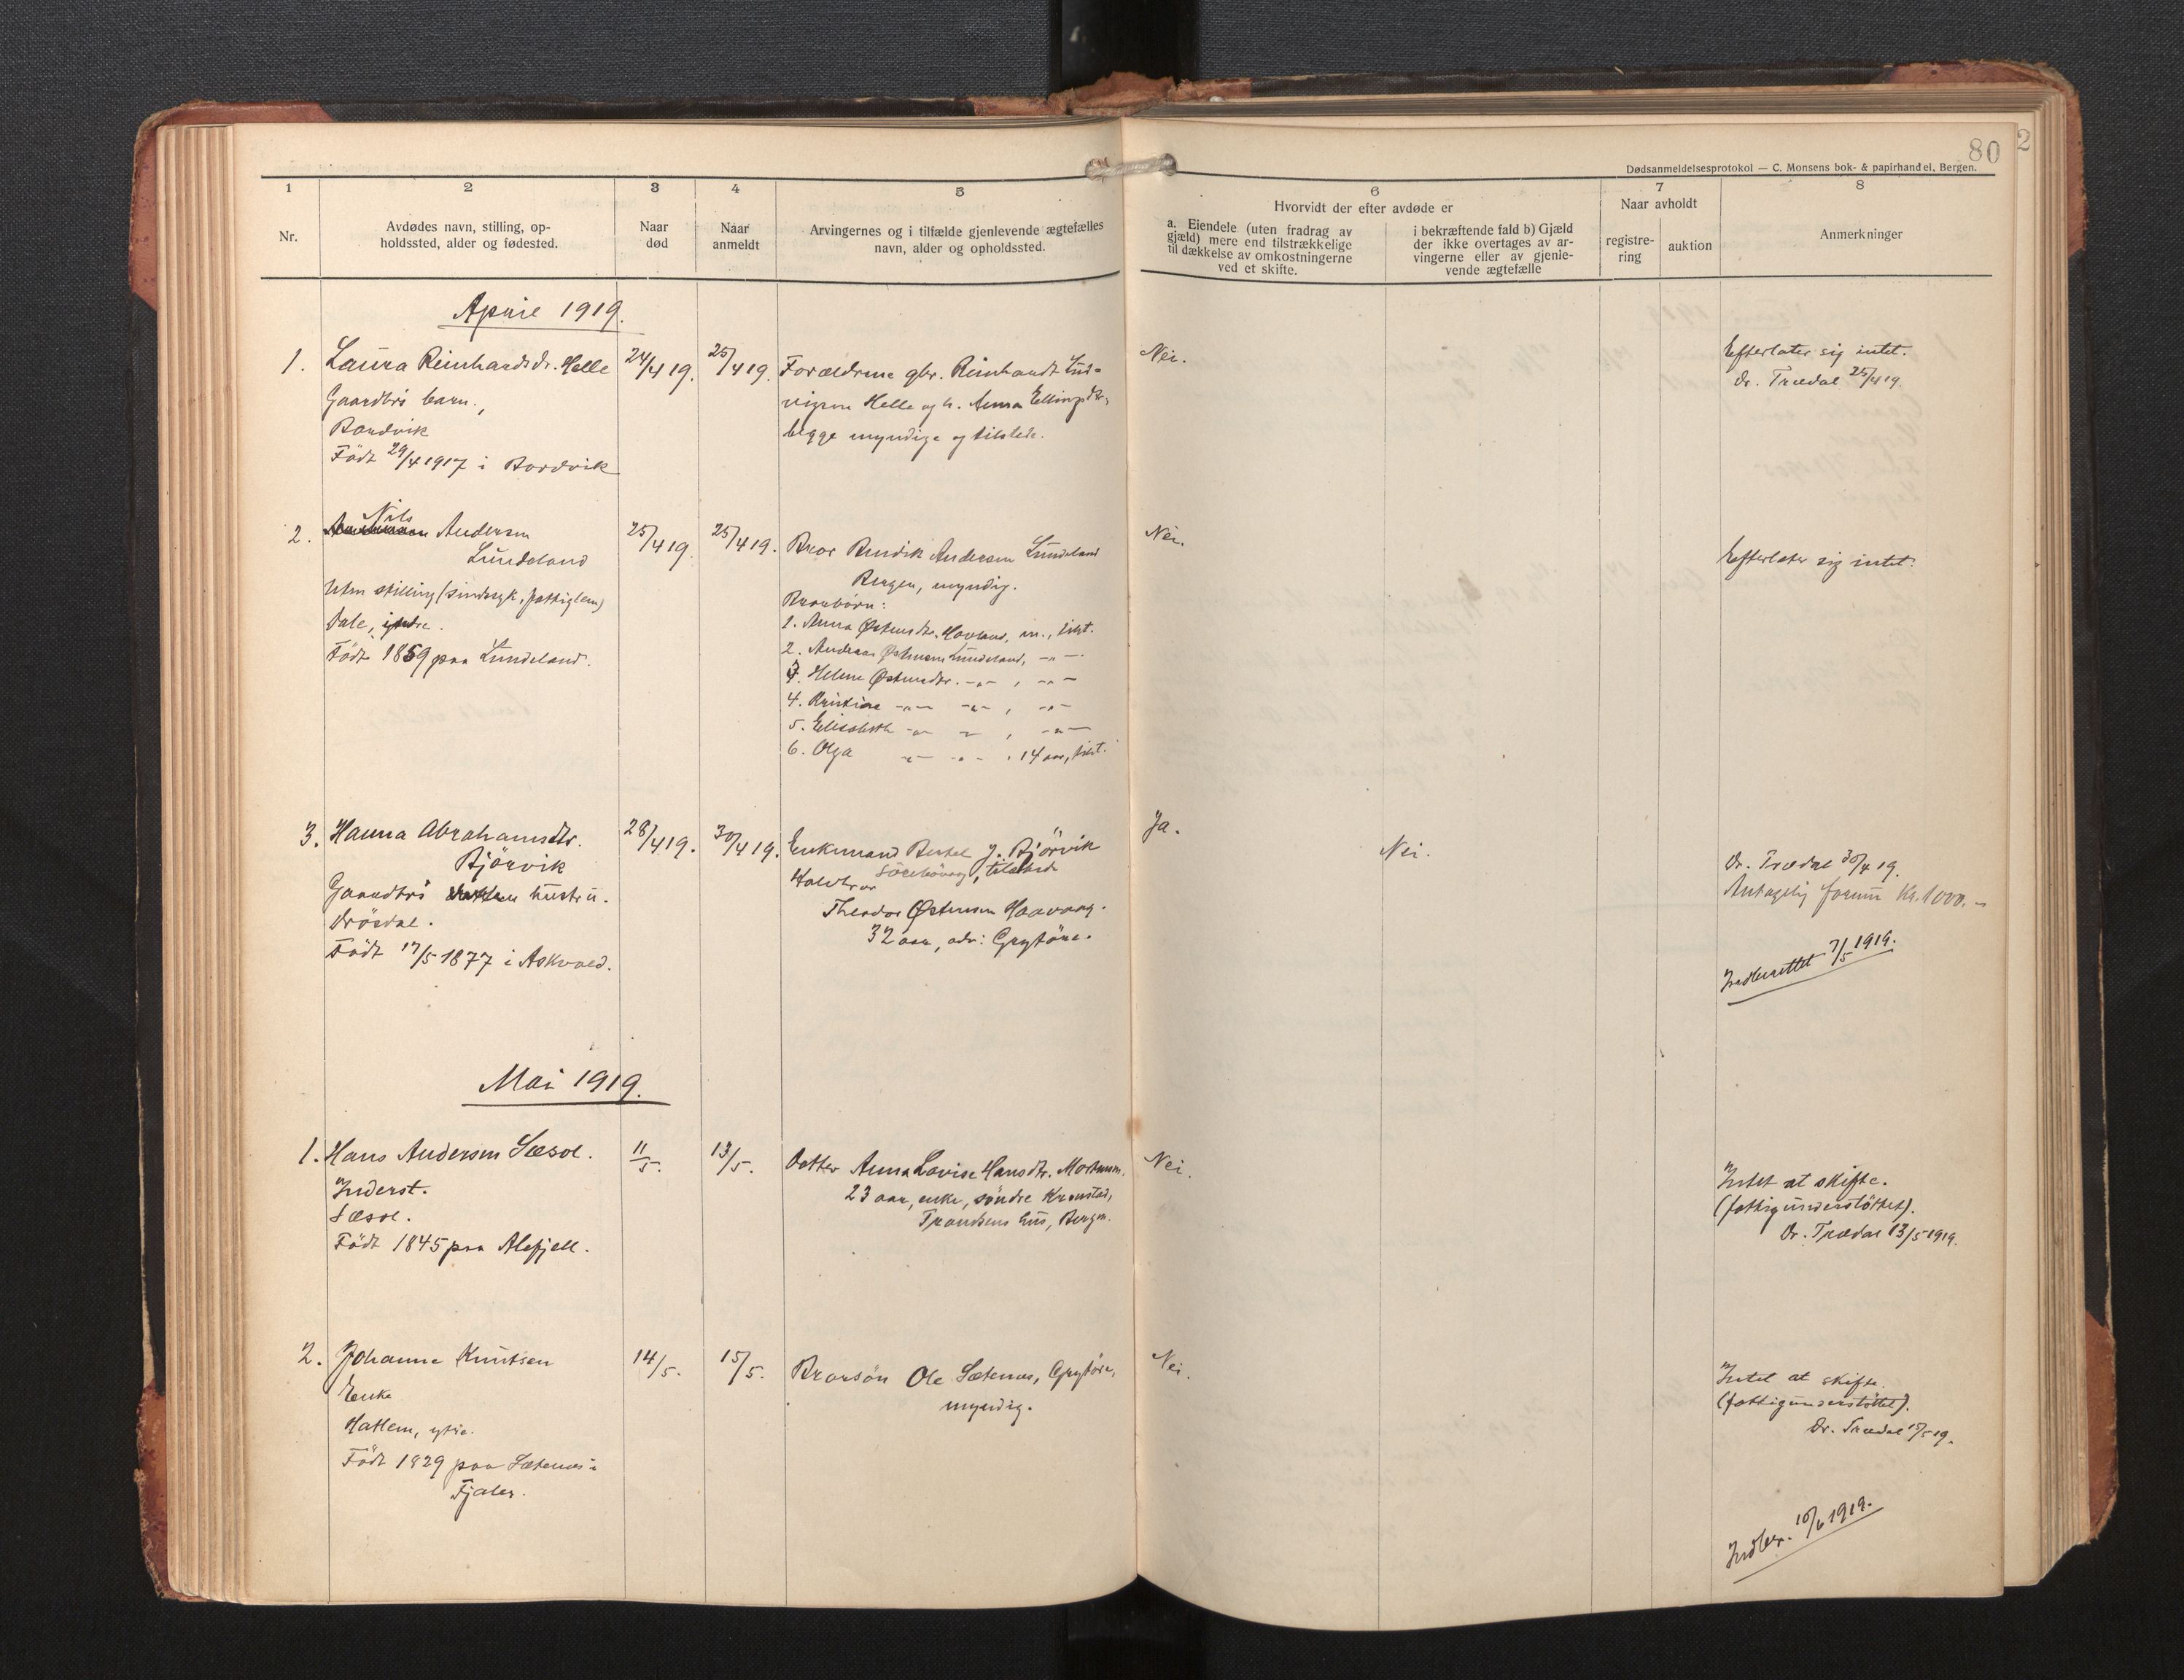 80
2
Dødsanmeldelsesprotokol — C. Monsens bok- & papirhandel, Bergen.
1
2
3
4
5
6
7
8
Nr.
Avdødes navn, stilling, op-
holdssted, alder og fødested.
Naar
død
Naar
anmeldt
Arvingernes og i tilfælde gjenlevende ægtefælles
navn, alder og opholdssted.
Hvorvidt der efter avdøde er
a. Eiendele (uten fradrag av
gjæld) mere end tilstrækkelige
til dækkelse av omkostningerne
ved et skifte.
i bekræftende fald b) Gjæld
der ikke overtages av ar-
vingerne eller av gjenle-
vende ægtefælle
Naar avholdt
registre-
ring
auktion
Anmerkninger
April 1919.
1. Laura Reinhardsdr. Helle
Gaardbr's barn.,
Bordvik
Födt 29/4 1917 i Bordvik
24/4 19.
25/4 19.
Forældrene gbr. Reinhardt Lud-
vigsen Helle og h. Anna Ellingsdtr,
begge myndige og tilstede.
Nei.
Efterlater sig intet.
Dr. Trædal 25/4 19.
2. Nils Andersen
Lundeland
Uten stilling (sindssyk, fattiglem)
Dale, indre.
Födt 1859 paa Lundeland.
25/4 19.
25/4 19.
Bror Bendik Andersen Lundeland
Bergen, myndig.
Brorbörn:
1. Anna Østensdtr. Hovland, m., tilst.
2. Andreas Østensen Lundeland, -"-
3. Helene Østensdtr. -"- , -"-
4. Kristine -"- -"- , -"-
5. Elisabeth -"- -"- , -"-
6. Olga -"- -"- , 14 aar, tilst.
Nei.
Efterlater sig intet.
3. Hanna Abrahamsdtr.
Bjørvik
Gaardbr's hustru.
Drösdal.
Födt 17/5 1877 i Askvold.
28/4 19.
30/4 19.
Enkemand Bertel J. Björvik
tilstede
Halvbror
Theodor Østensen Haavarg.
32 aar, adr: Grytöra.
Ja.
Nei.
Dr. Trædal 30/4 19.
Antagelig formu Kr. 1000.-
Indberettet 7/5 1919.
Mai 1919.
1. Hans Andersen Sæsol.
Inderst.
Sæsol.
Födt 1845 paa Alefjell.
11/5.
13/5.
Datter Anna Lovise Hansdtr. Mortensen.
23 aar, enke, söndre Kronstad,
Frantsens hus, Bergen.
Nei.
Intet at skifte.
(fattigunderstöttet).
Dr. Trædal 13/5 1919.
2. Johanne Knutsen
Enke
Hatlem, ytre.
Födt 1829 paa Sætenes i
Fjaler.
14/5.
15/5.
Brorsön Ole Sætenes, Grytöra,
myndig.
Nei.
Intet at skifte.
(fattigunderstöttet).
Dr. Trædal 15/5 19.
Indber. 10/6 1919.